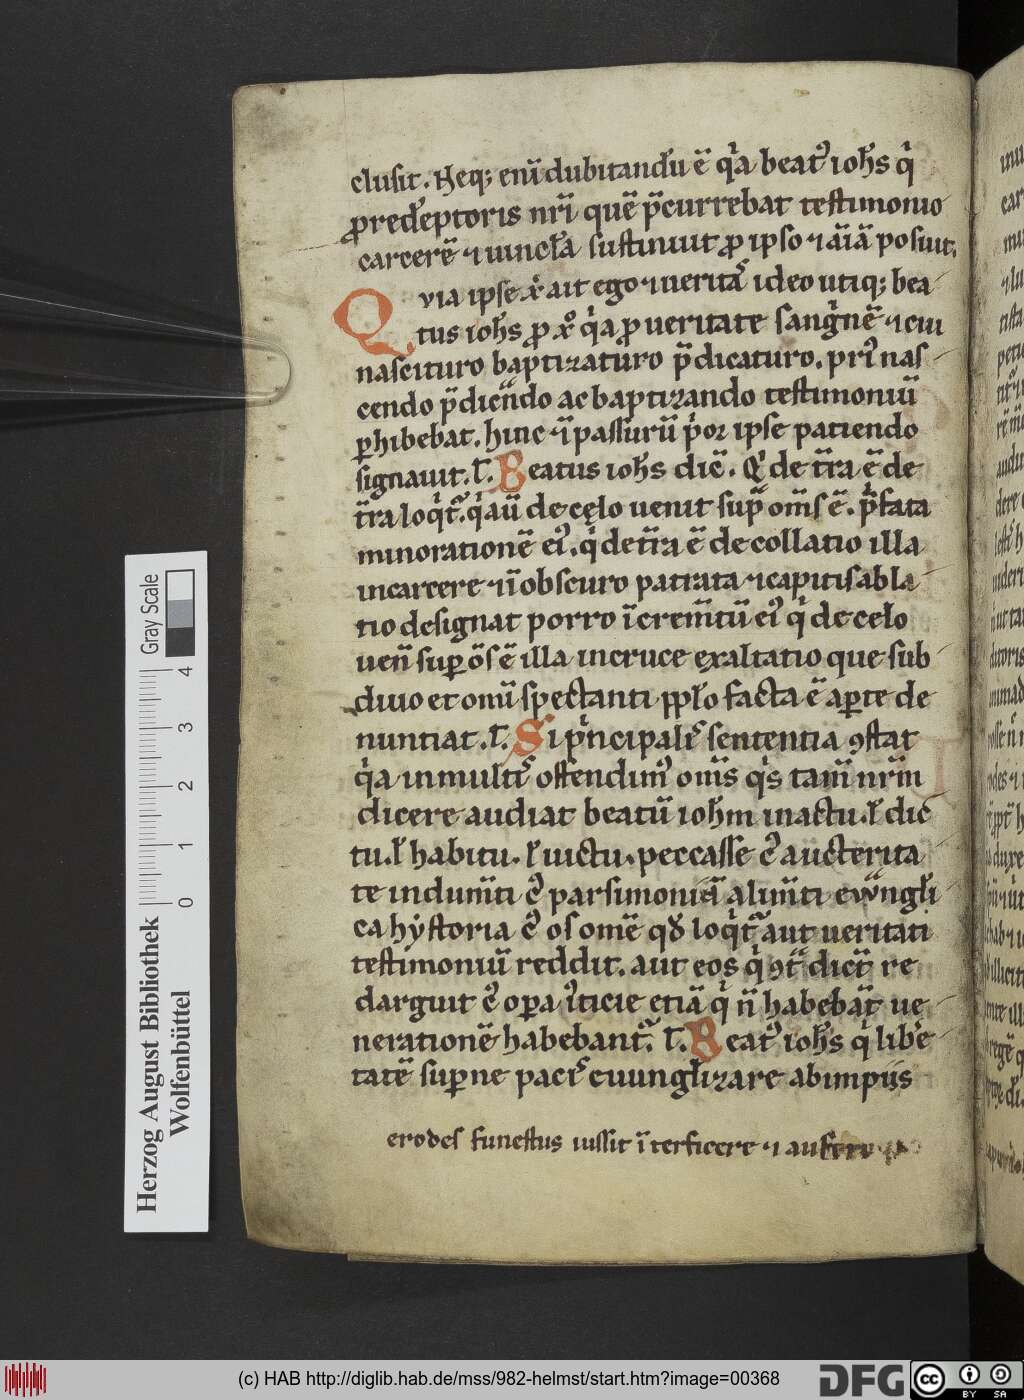 clusit. Neq; eni᷑ dubitandu᷑ ē qͥa beat᷒ ioh̄s qͥ
ꝓredēptoris nr̄i quē p̄currebat testimonio
carcerē ⁊ uincl̄a sustinuit ꝓ ipso ⁊ ai᷑ā posuit.
Quia ipse xp̄c ait ego ueritas ideo utiq; bea
tus ioh̄s ꝓ xº qͥa ꝓ ueritate sangͥnē ⁊ cui
nascituro baptizaturo p̄dicaturo. priꝰ nas
cendo p̄dicando ac baptizando testimoniū
ꝑhibebat. hinc ⁊ passurū pͥor ipse patiendo
signauit. l̄. Beatus ioh̄s dic̄. Qͥ de tr̄a ē de
tr̄a loqͥt᷑. qͥ aū de cęlo uenit sup om̄s ē. p̄fata
minorationē eiꝰ. qͥ de tr̄a ē decollatio illa
in carcere ⁊ ī obscuro patrata ⁊ capitis abla
tio designat porro īcrem̄tū eiꝰ qͥ de celo
uen̄ suꝑ ōs ē illa in cruce exaltatio que sub
diuo et omi᷑ spectanti ppl̄o facta ē aꝑte de
nuntiat. l̄. Si pͥncipalis sententia ꝯstat
qͥa in multis offendimꝰ om̄s qͥs tam̄ nr̄m
dicere audiat beatū ioh̄m in actu. l̄ dic
tu. l̄ habitu. l̄ uictu. peccasse c᷒ aucterita
te indum̄ti c᷒ parsimoniā alim̄ti ewangl̄i
ca hystoria c᷒ os omē qd̄ loqͥt᷑ aut ueritati
testimoniū reddit. aut eos qͥ ꝯt᷑ dict᷑ re
darguit c᷒ oꝑa iꝰticie etiā qͥ n̄ habebat᷑ ue
nerationē habebant᷑. l̄. Beat᷒ ioh̄s qͥ libe
tatē suꝑne pacis euungl̄izare ab impiis
erodes funestus iussit īterficere ⁊ auferre
Herzog August Bibliothek
Wolfenbüttel
0 1 2 3 4
Gray Scale
(c) HAB http://diglib.hab.de/mss/982-helmst/start.htm?image=00368
DFG
cc BY SA